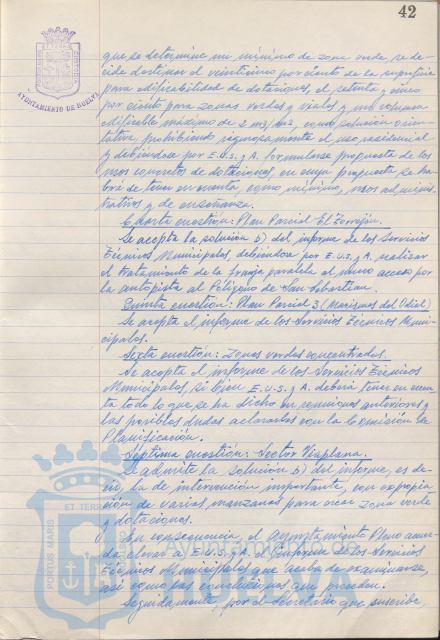 42
AYUNTAMIENTO DE HUELVA
que se determine un mínimo de zona verde, se de-
cide destinar el veinticinco por ciento de la superficie
para edificabilidad de dotaciones, el setenta y cinco
por ciento para zonas verdes y viales y un volumen
edificable máximo de 2 m3/m2, como solución orien-
tativa, prohibiendo rigurosamente el uso residencial
y debiéndose por E.U.S. y A. formularse propuesta de los
usos concretos de dotaciones, en cuya propuesta se ha-
brá de tener en cuenta, como mínimo, usos adminis-
trativos y de enseñanza.
Cuarta cuestión: Plan Parcial El Torrejón.
Se acepta la solución b) del informe de los Servicios
Técnicos Municipales, debiéndose por E.U.S. y A. realizar
el tratamiento de la franja paralela al nuevo acceso por
la autopista al Polígono de San Sebastian.
Quinta cuestión: Plan Parcial 3 (Marismas del Odiel)
Se acepta el informe de los Servicios Técnicos Muni-
cipales.
Sexta cuestión: Zonas verdes concentradas.
Se acepta el informe de los Servicios Técnicos
Municipales, si bien E.U.S. y A. deberá tener en cuen-
ta todo lo que se ha dicho en reuniones anteriores y
las posibles dudas aclararlas con la Comisión de
Planificación.
Séptima cuestión: Sector Viaplana.
Se admite la solución b) del informe, es de-
cir, la de intervención importante, con expropia-
ción de varias manzanas para crear zona verde
y dotaciones.
En consecuencia, el Ayuntamiento Pleno acuer-
da elevar a E.U.S. y A. el informe de los Servicios
Técnicos Municipales que acaba de examinarse,
así como las conclusiones que preceden.
Seguidamente, por el Secretario que suscribe,
PORTUS MARIS
ET TERRAE
HUELVA